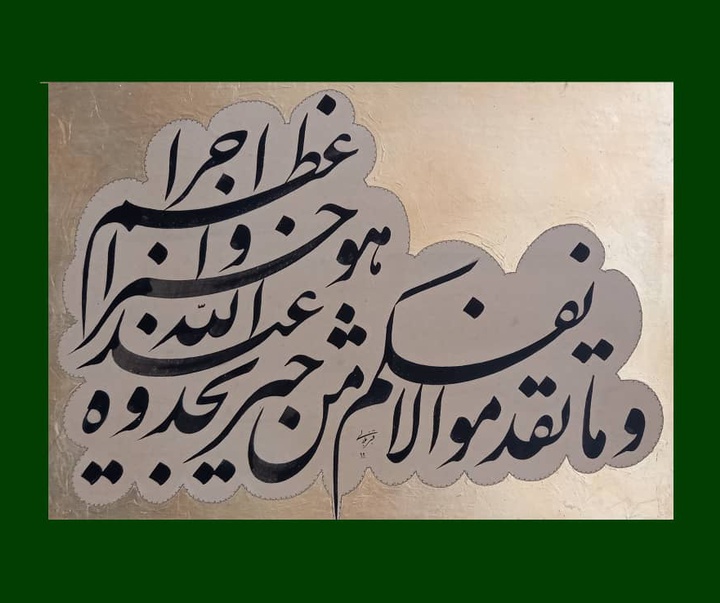 وما تقدموا لانفسکم من خیر تجدوه
عند الله هو خیرا واعظم اجرا